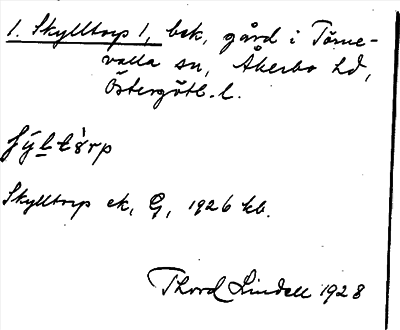 1. Skylltorp 1, bsk, gård i Törne-
valla sn, Åkerbo hd,
Östergötl. l.
Skylltorp ek, G, 1926 kb.
Thord Lindell 1928